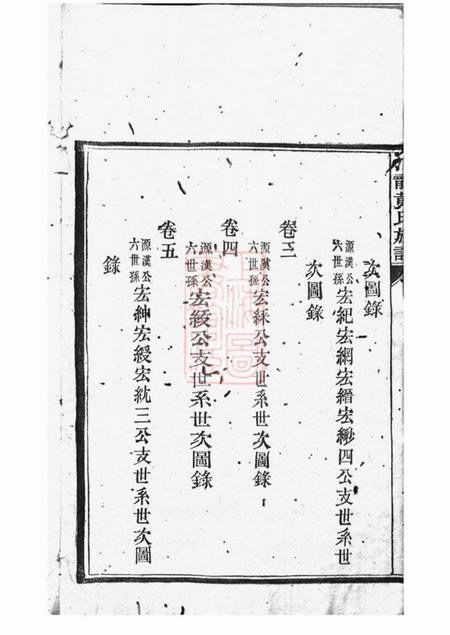 次圖錄
源漢公六世孫宏紀宏綱宏縉宏緲四公支世系世
次圖錄
卷三
源漢公六世孫宏綵公支世系世次圖錄
卷四
源漢公六世孫宏綬公支世系世次圖錄
卷五
源漢公六世孫宏紳宏綬宏紞三公支世系世次圖
錄